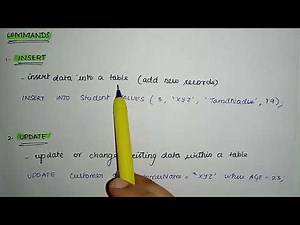 COMMANDS
1- INSERT
- insert data into a table (add new records)
INSERT INTO Student VALUES ( 'XYZ', 'TamilNadu', 19);
2- UPDATE
- update or change existing data within a table
UPDATE Customer Name = "XYZ" where AGE = 23;